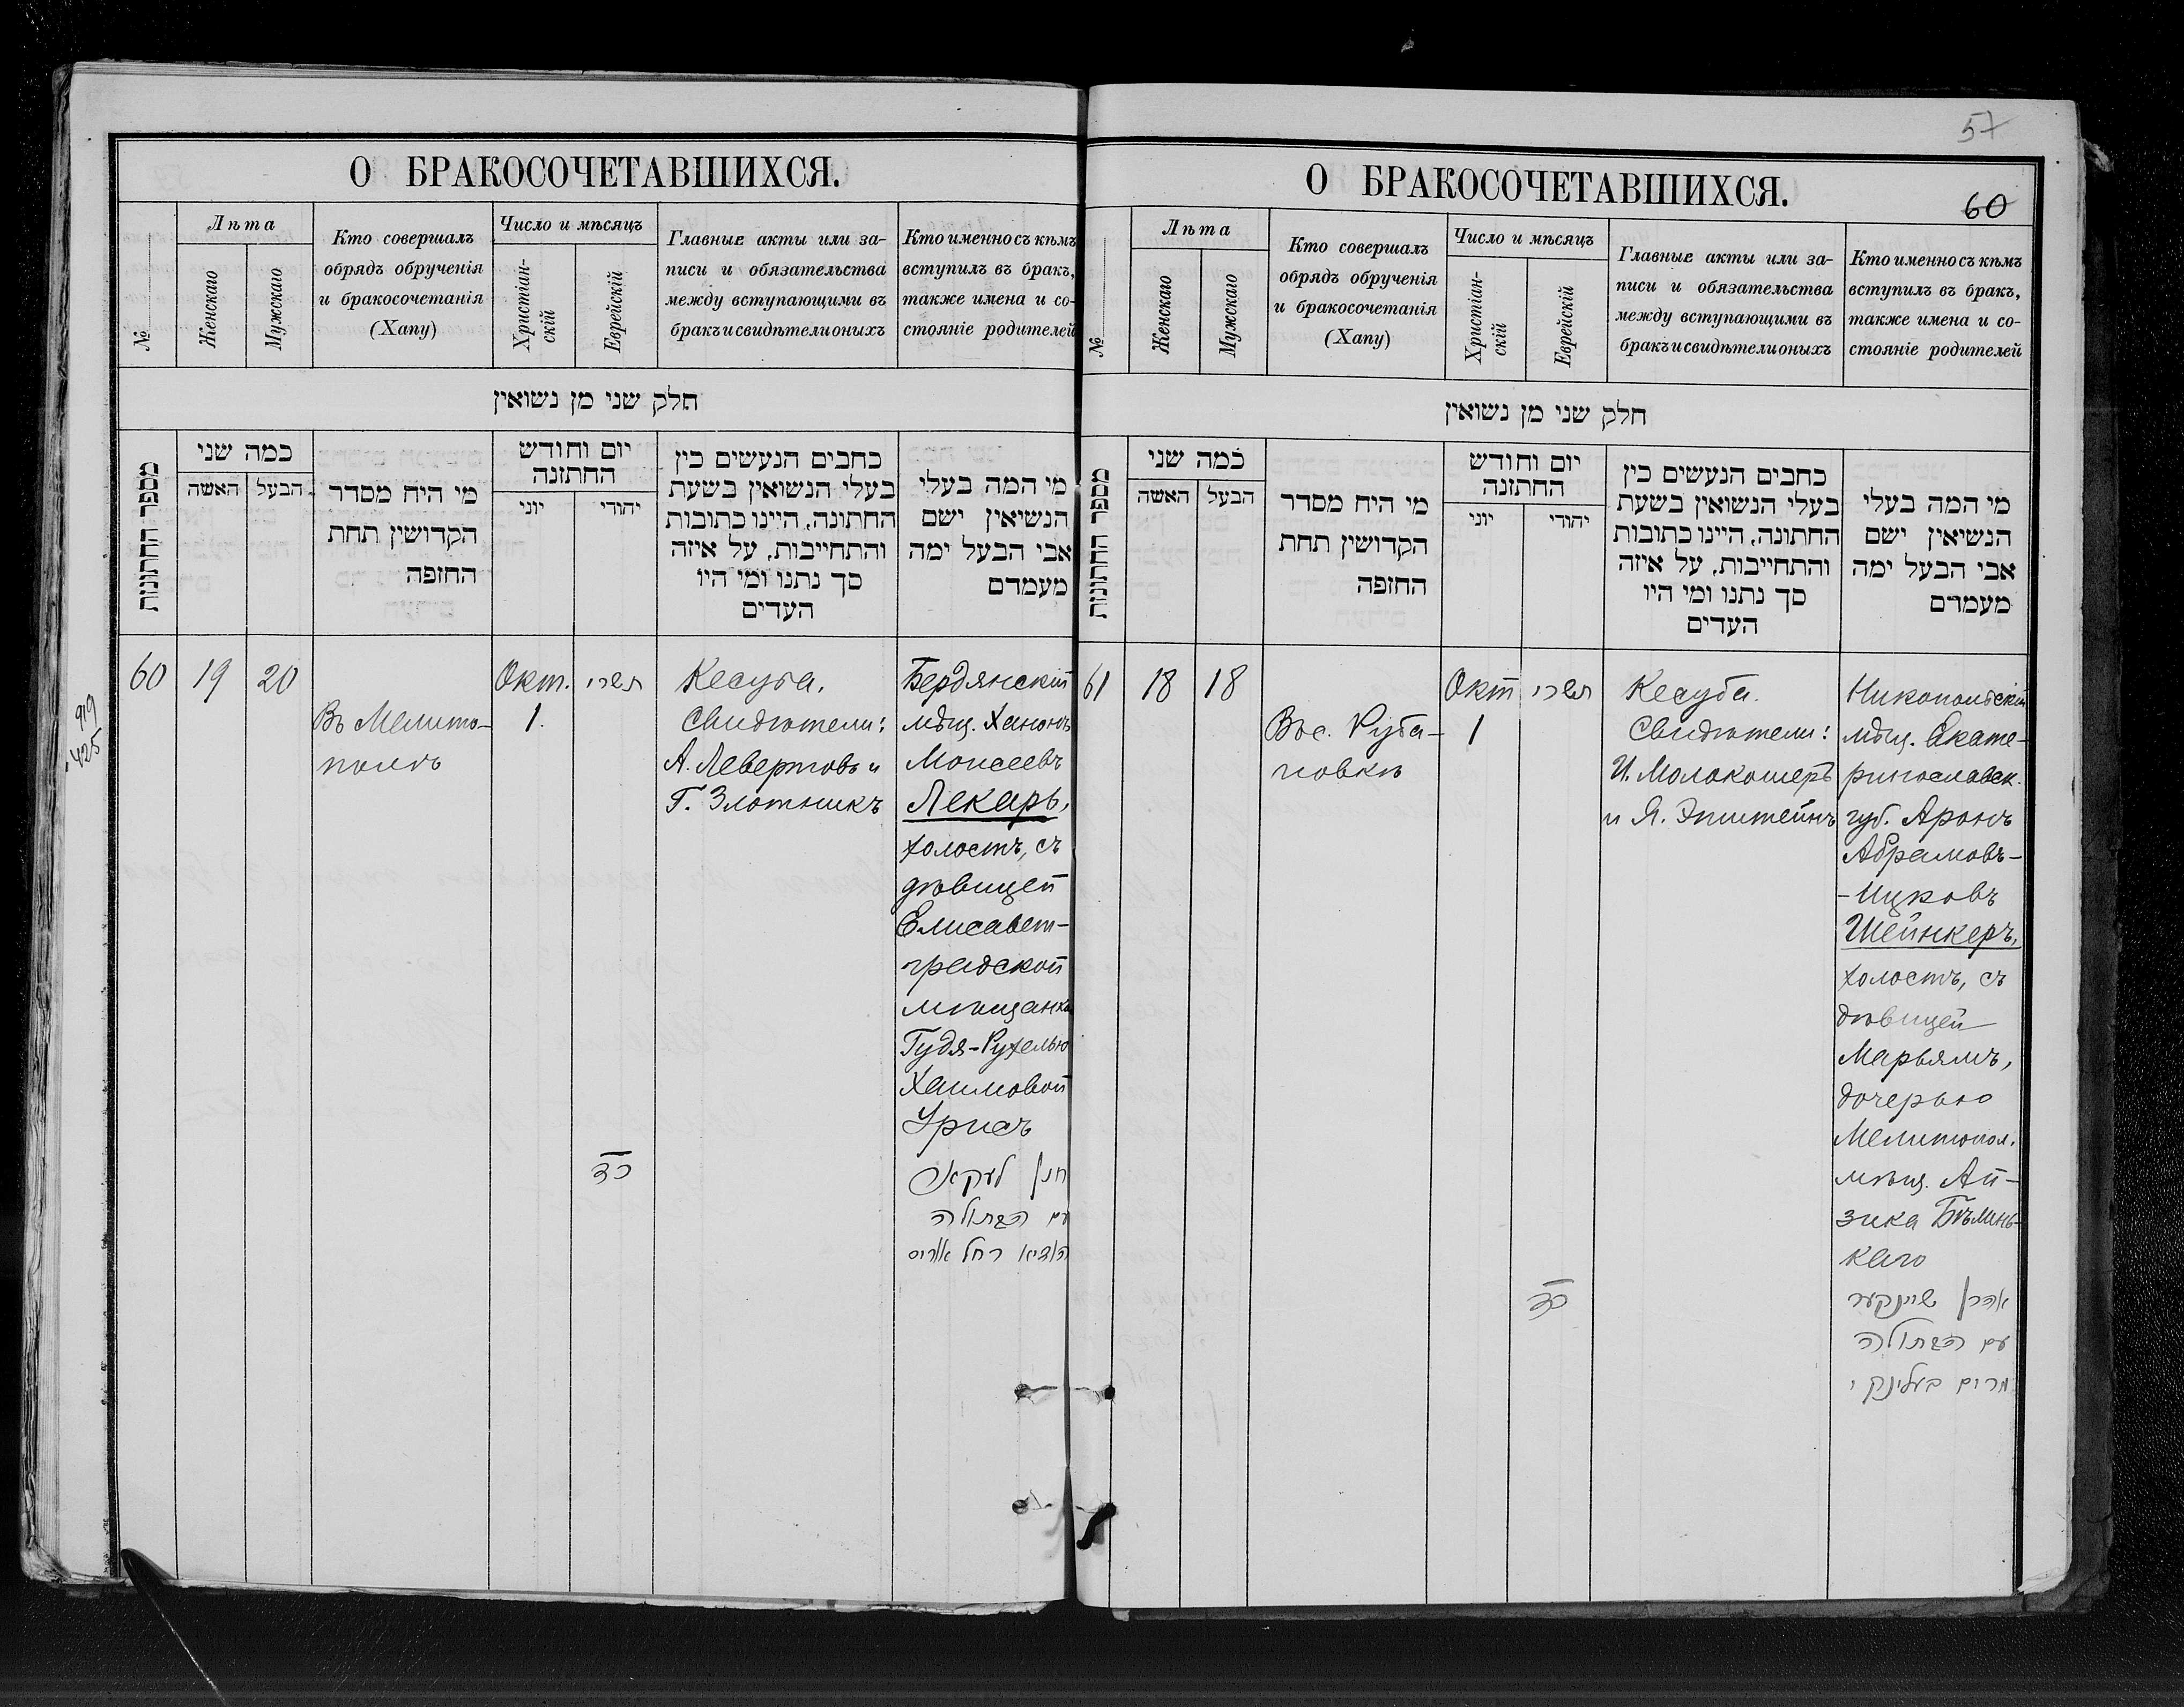 О БРАКОСОЧЕТАВШИХСЯ.
№
Лѣта
Женскаго
Мужскаго
Кто совершалъ
обрядъ обрученія
и бракосочетанія
(Хапу)
Число и мѣсяцъ
Христіан-
скій
Еврейскій
Главные акты или за-
писи и обязательства
между вступающими въ
бракъ и свидѣтели оныхъ
Кто именно съ кѣмъ
вступилъ въ бракъ,
также имена и со-
стояніе родителей
חלק שני מן נשואין
מספר החתונות
כמה שני
האשה
הבעל
מי היח מסדר
הקדושין תחת
החזפה
יום וחודש
החתזנה
יוני
יהודי
כחבים הנעשים כין
בעלי הנשואין בשעת
החתונה, היינו כתובות
והתחייבות, על איזה
סך נתנו ומי היו
העדים
מי המה בעלי
הנשיאין ישם
אבי הבעל ימה
מעמדם
919
425
60
19
20
Въ Мелито-
полѣ
Окт.
1.
תשרי
כד
Кесуба.
Свидѣтели:
А. Левертовъ и
Г. Злотникъ
Бердянскій
мѣщ. Ханонъ
Моисеевъ
Лекарь,
холостъ, съ
дѣвицей
Елисавет-
градской
мѣщанкой
Гудя-Рухелью
Хаимовой
Урисъ
עם הבתולה
О БРАКОСОЧЕТАВШИХСЯ.
57
60
№
Лѣта
Женскаго
Мужскаго
Кто совершалъ
обрядъ обрученія
и бракосочетанія
(Хапу)
Число и мѣсяцъ
Христіан-
скій
Еврейскій
Главные акты или за-
писи и обязательства
между вступающими въ
бракъ и свидѣтели оныхъ
Кто именно съ кѣмъ
вступилъ въ бракъ,
также имена и со-
стояніе родителей
חלק שני מן נשואין
מספר החתונות
כמה שני
האשה
הבעל
מי היח מסדר
הקדושין תחת
החזפה
יום וחודש
החתזנה
יוני
יהודי
כחבים הנעשים כין
בעלי הנשואין בשעת
החתונה, היינו כתובות
והתחייבות, על איזה
סך נתנו ומי היו
העדים
מי המה בעלי
הנשיאין ישם
אבי הבעל ימה
מעמדם
61
18
18
Въ с. Руба-
новкѣ
Окт
1
תשרי
כד
Кесуба.
Свидѣтели:
И. Молокошеръ
и Я. Эпштейнъ
Никопольскій
мѣщ. Екате-
ринославск.
губ. Аронъ
Абрамовъ-
-Ицковъ
Шейнкеръ,
холостъ, съ
дѣвицей
Марьямъ,
дочерью
Мелитопол.
мѣщ. Ай-
зика Бѣлинь-
каго
אהרן שיינקער
עם הבתולה
מרים בעלינקי